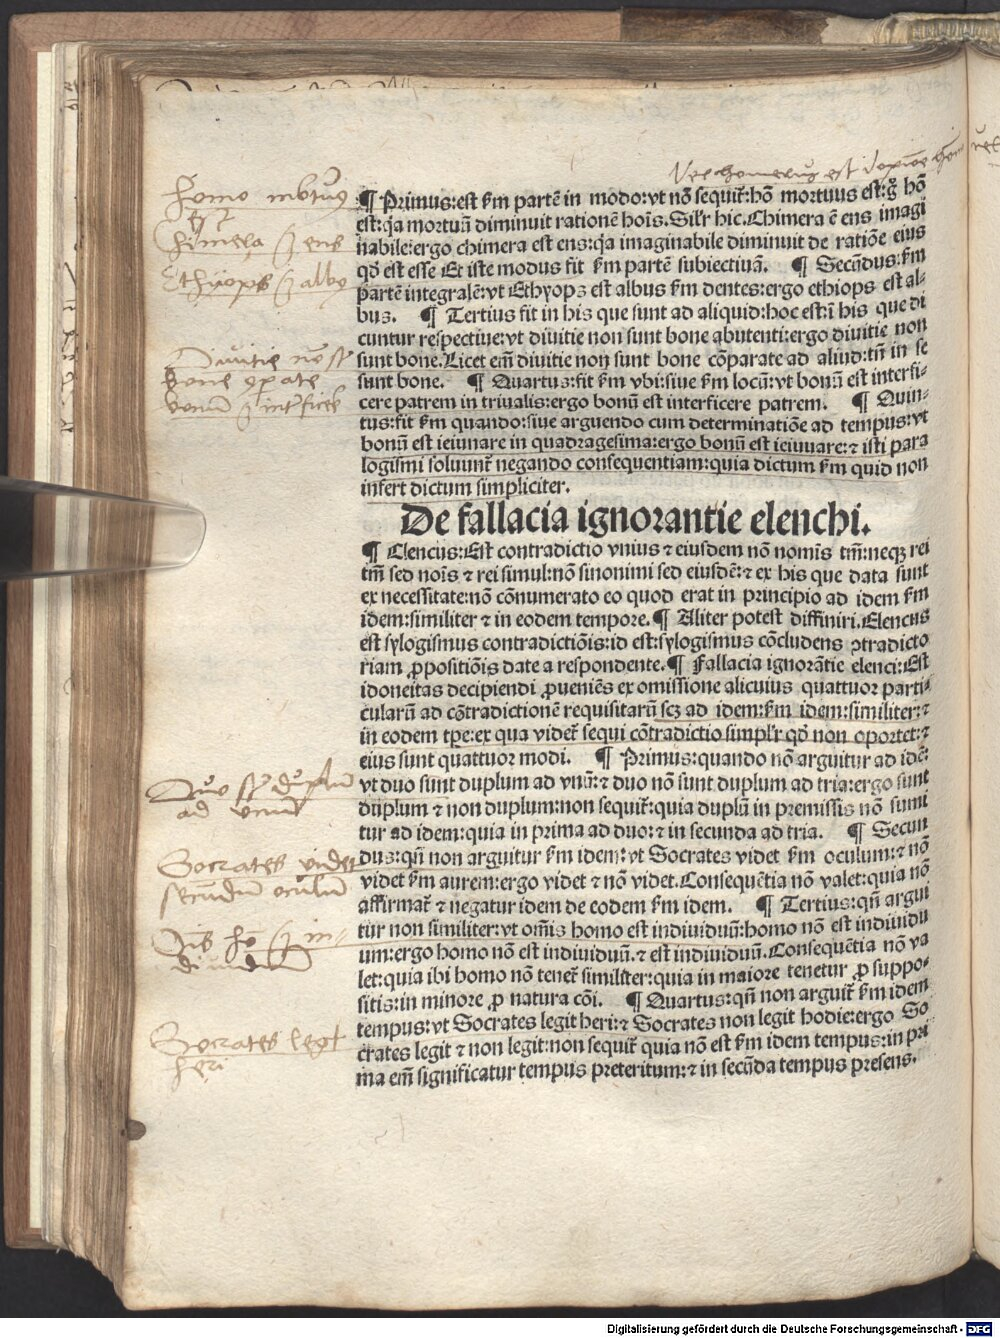 Vel homerus est
homo mortuus
est
Chimera est ens
Ethyops est albus
Divitie non sunt
bone comparate
bonum est interficere
¶ Primus: est ſm partē in modo: vt nō sequit̃: hō mortuus est: g̊ hō
est: q̃a mortuū diminuit rationē hoīs. Sil'r hic. Chimera ē ens imagi
nabile: ergo chimera est ens: q̃a imaginabile diminuit de ratiōe eius
qd̛ est esse Et iste modus fit ſm partē subiectiuā. ¶ Secūdus: ſm
partē integralē: vt Ethyops est albus ſm dentes: ergo ethiops est al-
bus. ¶ Tertius fit in his que sunt ad aliquid: hoc est: ī his que di
cuntur respectiue: vt diuitie non sunt bone abutenti: ergo diuitie non
sunt bone. Licet em̄ diuitie non sunt bone cōparate ad aliud: tn̄ in se
sunt bone. ¶ Quartus: fit ſm vbi: siue ſm locū: vt bonū est interfi-
cere patrem in triualis: ergo bonū est interficere patrem. ¶ Quin-
tus: fit ſm quando: siue arguendo cum determinatiōe ad tempus: vt
bonū est ieiunare in quadragesima: ergo bonū est ieiuuare: ⁊ isti para
logismi soluunt̃ negando consequentiam: quia dictum ſm quid non
infert dictum simpliciter.
De fallacia ignorantie elenchi.
¶ Elencus: Est contradictio vnius ⁊ eiusdem nō nomīs tm̄: neqꝫ rei
tm̄ sed noīs ⁊ rei simul: nō sinonimi sed eiusdē: ⁊ ex his que data sunt
ex necessitate: nō cōnumerato eo quod erat in principio ad idem ſm
idem: similiter ⁊ in eodem tempore. ¶ Aliter potest diffiniri. Elencus
est sylogismus contradictiōis: id est: sylogismus cōcludens ꝯtradicto
riam ꝓpositiōis date a respondente. ¶ Fallacia ignorātie elenci: Est
idoneitas decipiendi ꝓueniēs ex omissione alicuius quattuor parti-
cularū ad cōtradictionē requisitarū scꝫ ad idem: ſm idem: similiter: ⁊
in eodem tp̄e: ex qua videt̃ sequi cōtradictio simpl'r qd̛ non oportet: ⁊
eius sunt quattuor modi. ¶ Primus: quando nō arguitur ad idē:
vt duo sunt duplum ad vnū: ⁊ duo nō sunt duplum ad tria: ergo sunt
duplum ⁊ non duplum: non sequit̃: quia duplū in premissis nō sumi
tur ad idem: quia in prima ad duo: ⁊ in secunda ad tria. ¶ Secun
dus: qn̄ non arguitur ſm idem: vt Socrates videt ſm oculum: ⁊ nō
videt ſm aurem: ergo videt ⁊ nō videt. Consequētia nō valet: quia nō
affirmat̃ ⁊ negatur idem de eodem ſm idem. ¶ Tertius: qn̄ argui
tur non similiter: vt om̄is homo est indiuiduū: homo nō est indiuidu
um: ergo homo nō est indiuiduū. ⁊ est indiuiduū. Consequētia nō va
let: quia ibi homo nō tenet̃ similiter: quia in maiore tenetur ꝓ suppo-
sitis: in minore ꝓ natura cōi. ¶ Quartus: qn̄ non arguit̃ ſm idem
tempus: vt Socrates legit heri: ⁊ Socrates non legit hodie: ergo So
crates legit ⁊ non legit: non sequit̃ quia nō est ſm idem tempus: in pri
ma em̄ significatur tempus preteritum: ⁊ in secūda tempus presens.
Duo sunt duplum
ad unum
Socrates videt
secundum oculum
Ois homo est in-
dividuum
Socrates legit
heri
Digitalisierung gefördert durch die Deutsche Forschungsgemeinschaft - DFG